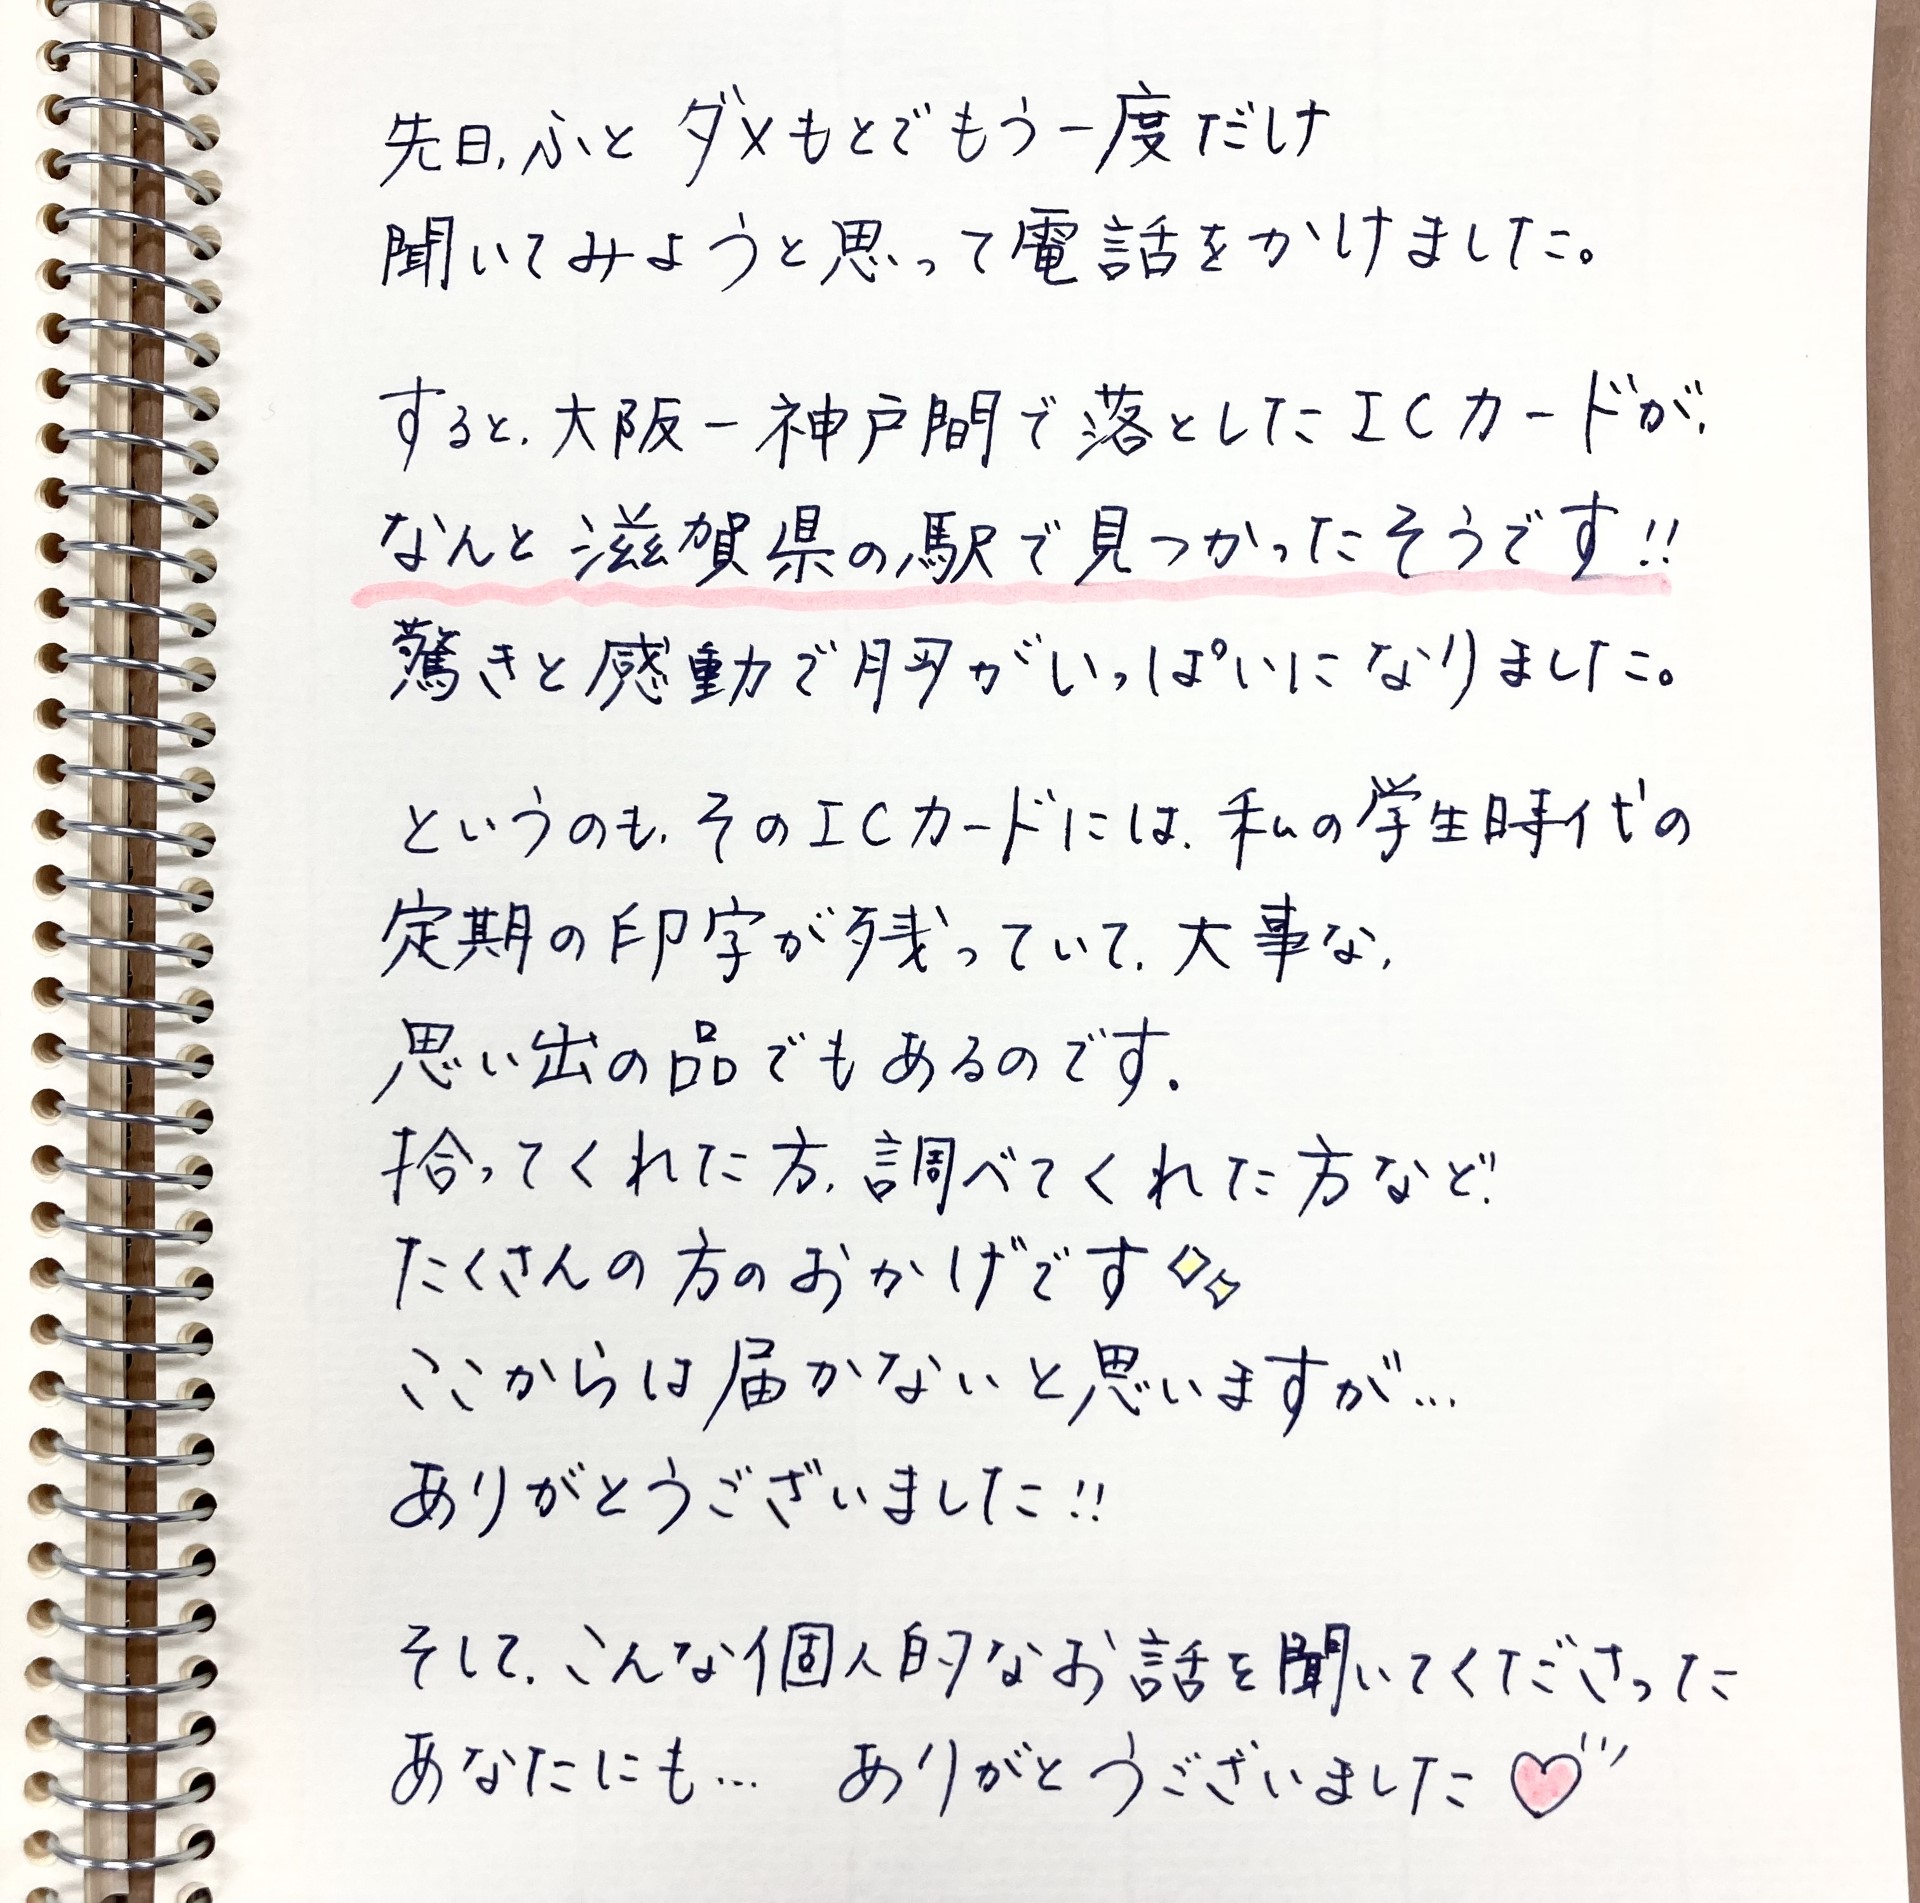 先日、ふと ダメもとでもう一度だけ
聞いてみようと思って電話をかけました。
すると、大阪ー神戸間で落としたICカードが、
なんと滋賀県の駅で見つかったそうです!!
驚きと感動で胸がいっぱいになりました。
というのも、そのICカードには、私の学生時代の
定期の印字が残っていて、大事な、
思い出の品でもあるのです。
拾ってくれた方、調べてくれた方など、
たくさんの方のおかげです
ここからは届かないと思いますが…
ありがとうございました!!
そして、こんな個人的なお話を聞いてくださった
あなたにも… ありがとうございました